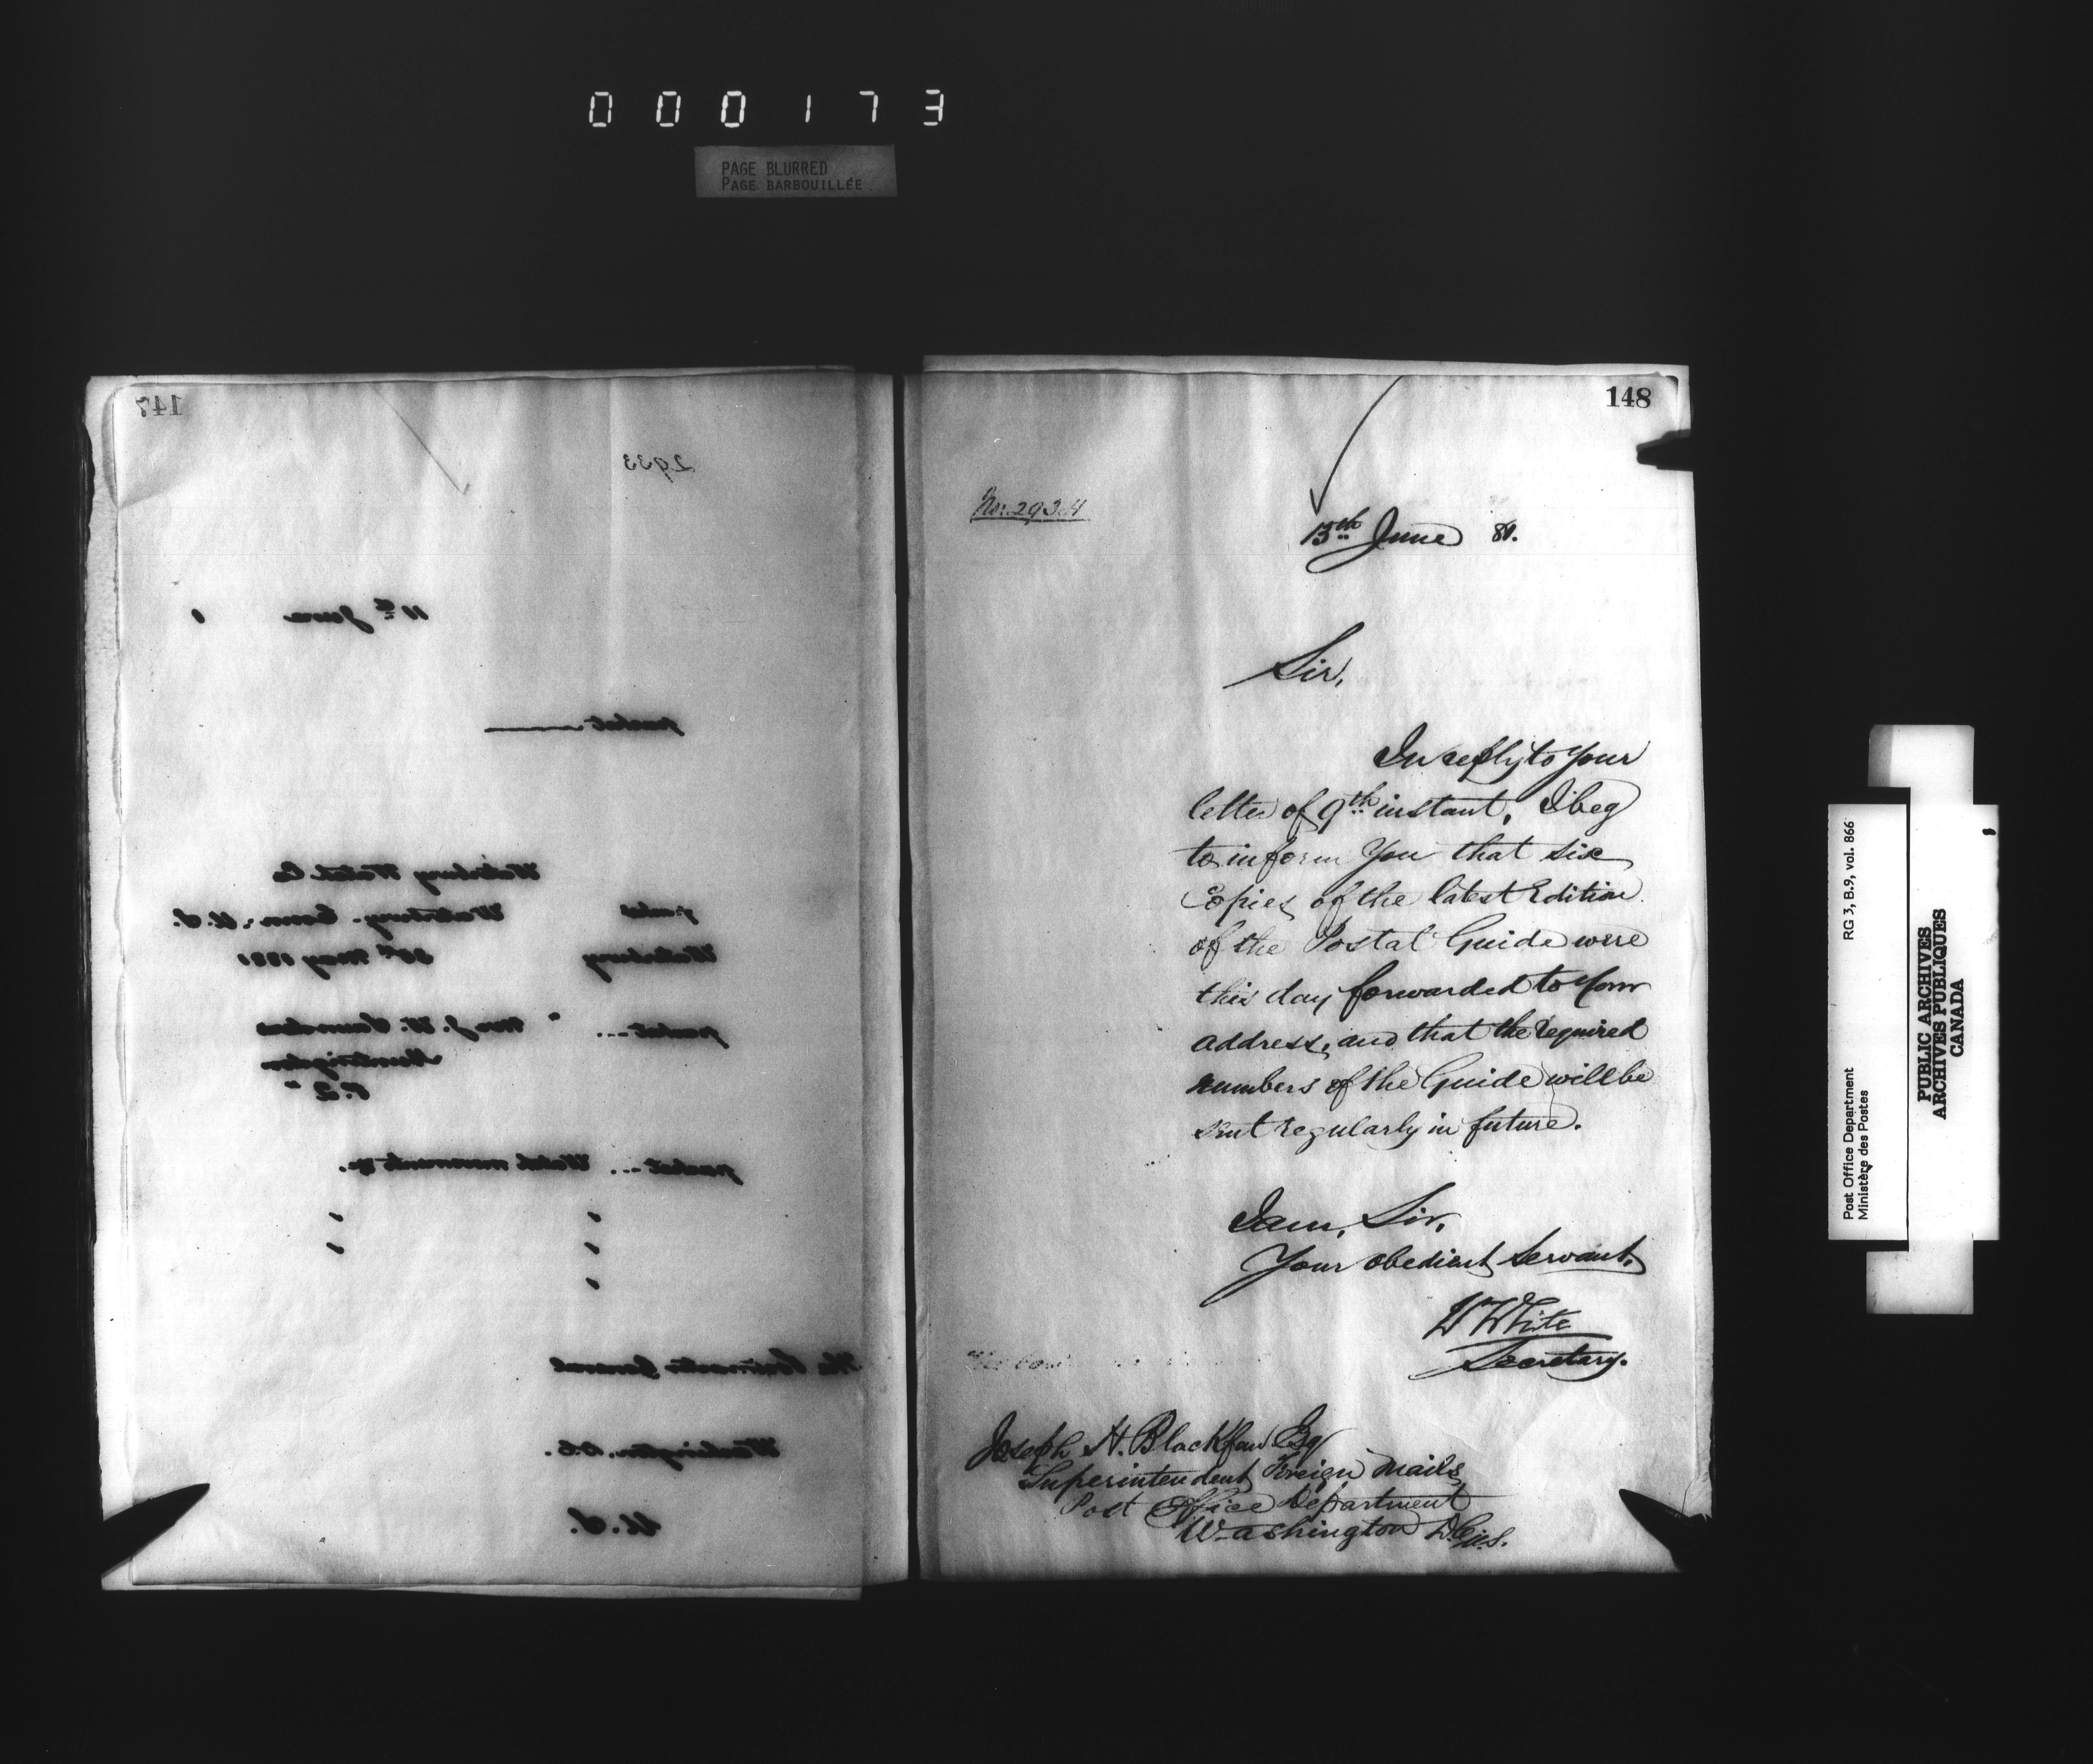 000173
PAGE BLURRED
PAGE BARBOUILLÉE
147
2933
11th June 1
packet
Waterbury Watch Co
packet Waterbury. Conn: U.S.
Waterbury 30th May 1881
packet ... "Mr J. W. Saunders
Huntingdon
P.Q"
packet ... Watch movements &c.
" "
" "
"
The Postmaster General
Washington. D.C.
U.S.
148
No: 2934
13th June 81.
Sir,
In reply to Your
letter of 9th instant, I beg
to inform You that six
Copies of the latest Edition
of the Postal Guide were
this day forwarded to Your
address, and that the required
numbers of the Guide will be
sent regularly in future.
I am, Sir,
Your obedient Servant,
W White
Secretary.
Joseph H. Blackfan Esq
Superintendent Foreign Mails
Post Office Department
Washington D.C. U.S.
Post Office Department
Ministère des Postes
RG 3, B.9, vol. 866
PUBLIC ARCHIVES
ARCHIVES PUBLIQUES
CANADA